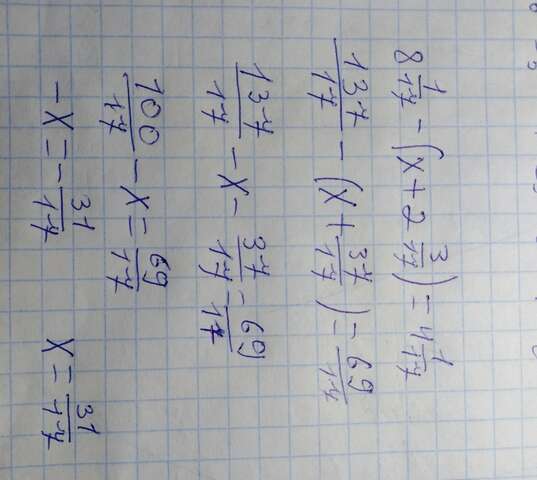 8 1/17 - (x + 2 3/17) = 4 1/17
137/17 - (x + 37/17) = 69/17
137/17 - x - 37/17 = 69/17
100/17 - x = 69/17
-x = -31/17 x = 31/17